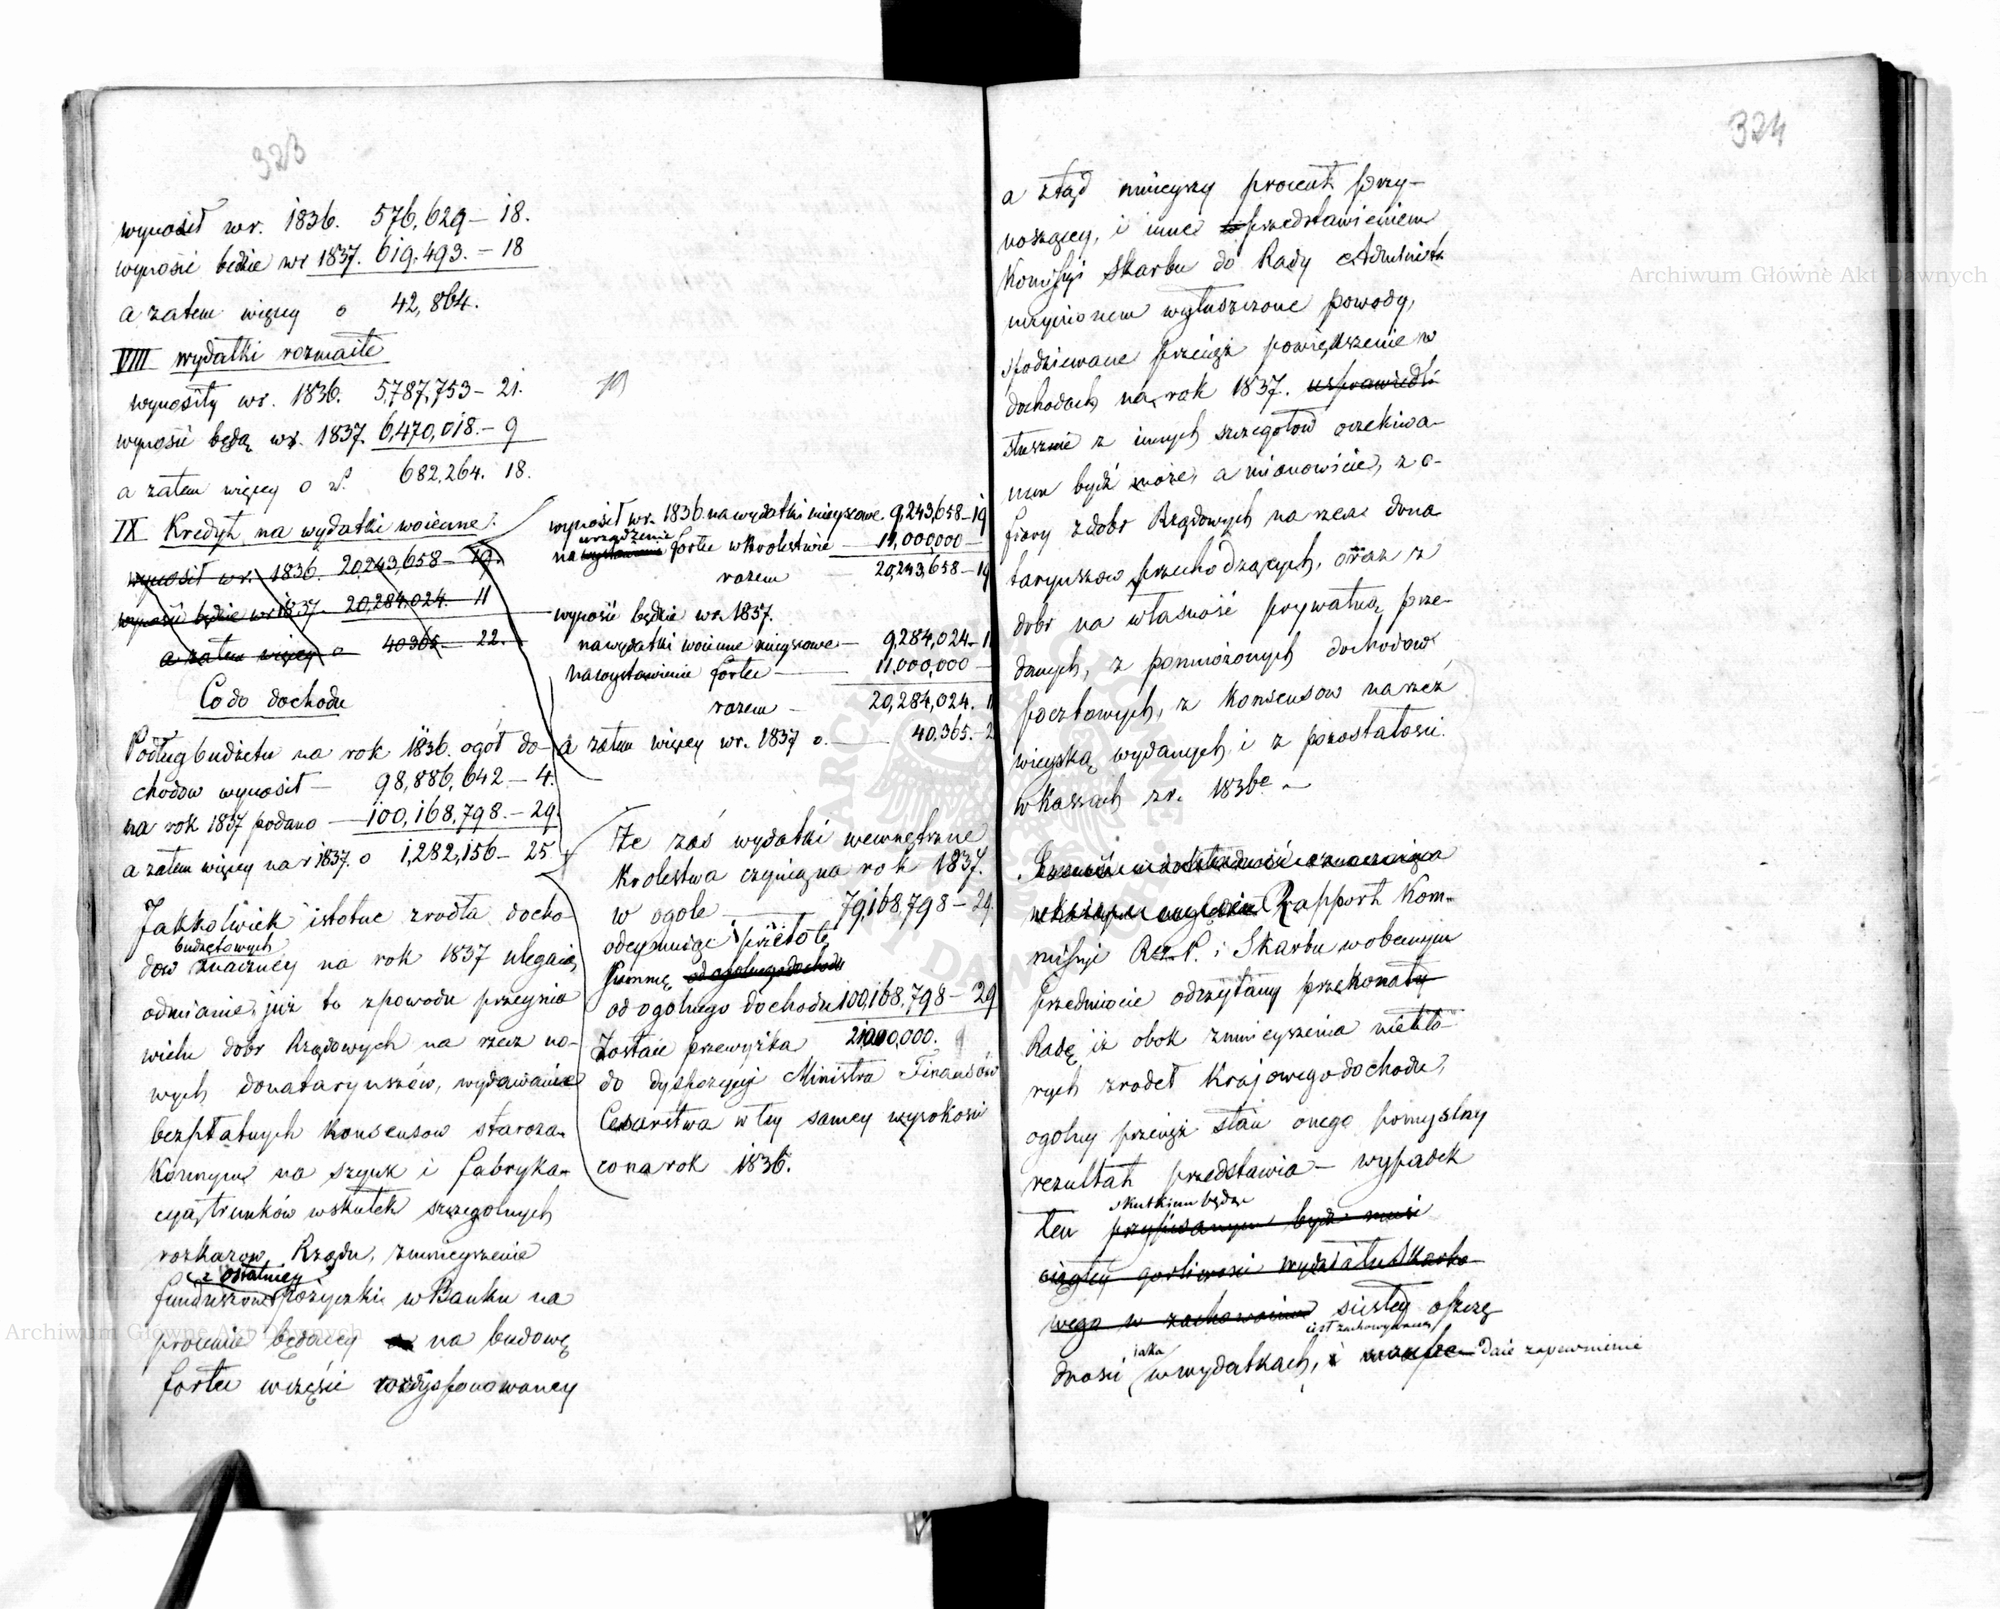 323
wynosił w r. 1836. 576,629 – 18.
wynosić będzie w r 1837. 619.493. – 18
a zatem więcey o 42,864.
VIII wydatki rozmaite
wynosiły w r. 1836. 5,787,753 – 21.
wynosić będą w r. 1837. 6,470,018. – 9
a zatem więcey o zł. 682,264. 18.
IX Kredyt na wydatki woienne.
wynosił w r. 1836. 20,243,658 – 19.
wynosić będzie w r 1837. 20,284,024. – 11
a zatem więcey o 40365 – 22.
Co do dochodu
Podług budżetu na rok 1836. ogół do-
chodow wynosił – 98,886,642 – 4.
na rok 1837 podano – 100,168,798. – 29.
a zatem więcey na r 1837. o 1,282,156 – 25.
Jakkolwiek istotne zrodła docho-
budżetowych
dow znaczney na rok 1837 ulegaią
odmianie, już to z powodu przeyścia
wielu dobr Rządowych na rzecz no-
wych donataryuszów, wydawania
bezpłatnych konsensow staroza-
konnym na szynk i fabryka-
cyą trunków wskutek szczegolnych
rozkazow Rządu, zmnieyszenie
z ostatniey
funduszow Pożyczki w Banku na
procencie będącey na budowę
fortec w części rozdysponowaney
wynosił w r. 1836. na wydatki mieyscowe 9,243,658 – 19
urządzenie
na wystawienie fortec w Krolestwie – 11,000,000 –
razem – 20,243,658 – 19
wynosić będzie w r. 1837.
na wydatki woienne mieyscowe – 9,284,024 – 11
na wystawienie fortec – 11,000,000 –
razem – 20,284,024. 11
a zatem więcey w r. 1837 o. – 40,365. – 2
Że zaś wydatki wewnętrzne
Krolestwa czynią na rok 1837.
w ogole – 79,168,798 – 29.
odeymuiąc przeto tę
summę od ogolnego dochodu
od ogolnego dochodu 100,168,798 – 29
Zostaie przewyżka 21,000,000.
do dyspozycyi Ministra Finansów
Cesarstwa w tey samey wysokości
co na rok 1836.
324
a ztąd mnieyszy procent przy-
noszącey, i inne w przedstawieniem
Komissyi Skarbu do Rady Administr
uczynionem wyłuszczone powody,
spodziewane przecież powiększenie w
dochodach na rok 1837. usprawiedli
słusznie z innych szczegołow oczekiwa-
nem bydź może, a mianowicie, z o-
fiary z dobr Rządowych na rzecz dona
taryuszow przechodzących, oraz z
dobr na własność prywatną prze-
danych, z pomnożonych dochodow
pocztowych, z konsensow na rzeź
wieyską wydanych i z pozostałości
w kassach z r. 1836e –
Rapport Kom-
missyi Rz. P. i Skarbu w obecnym
przedmiocie odczytany przekonały
Radę iż obok zmnieyszenia niektó-
rych zrodeł krajowego dochodu,
ogolny przecież stan onego pomyslny
rezultat przedstawia – wypadek
skutkiem będąc
ten przypisanym bydź musi
ciągłey gorliwosci wydziału Skarbo-
wego w zachowaniu scisłey oszczę
iest zachowywana,
iaka
dnosci w wydatkach, i daie zapewnienie
Archiwum Główne Akt Dawnych
Archiwum Główne Akt Dawnych
ARCHIWUM GŁÓWNE AKT DAWNYCH